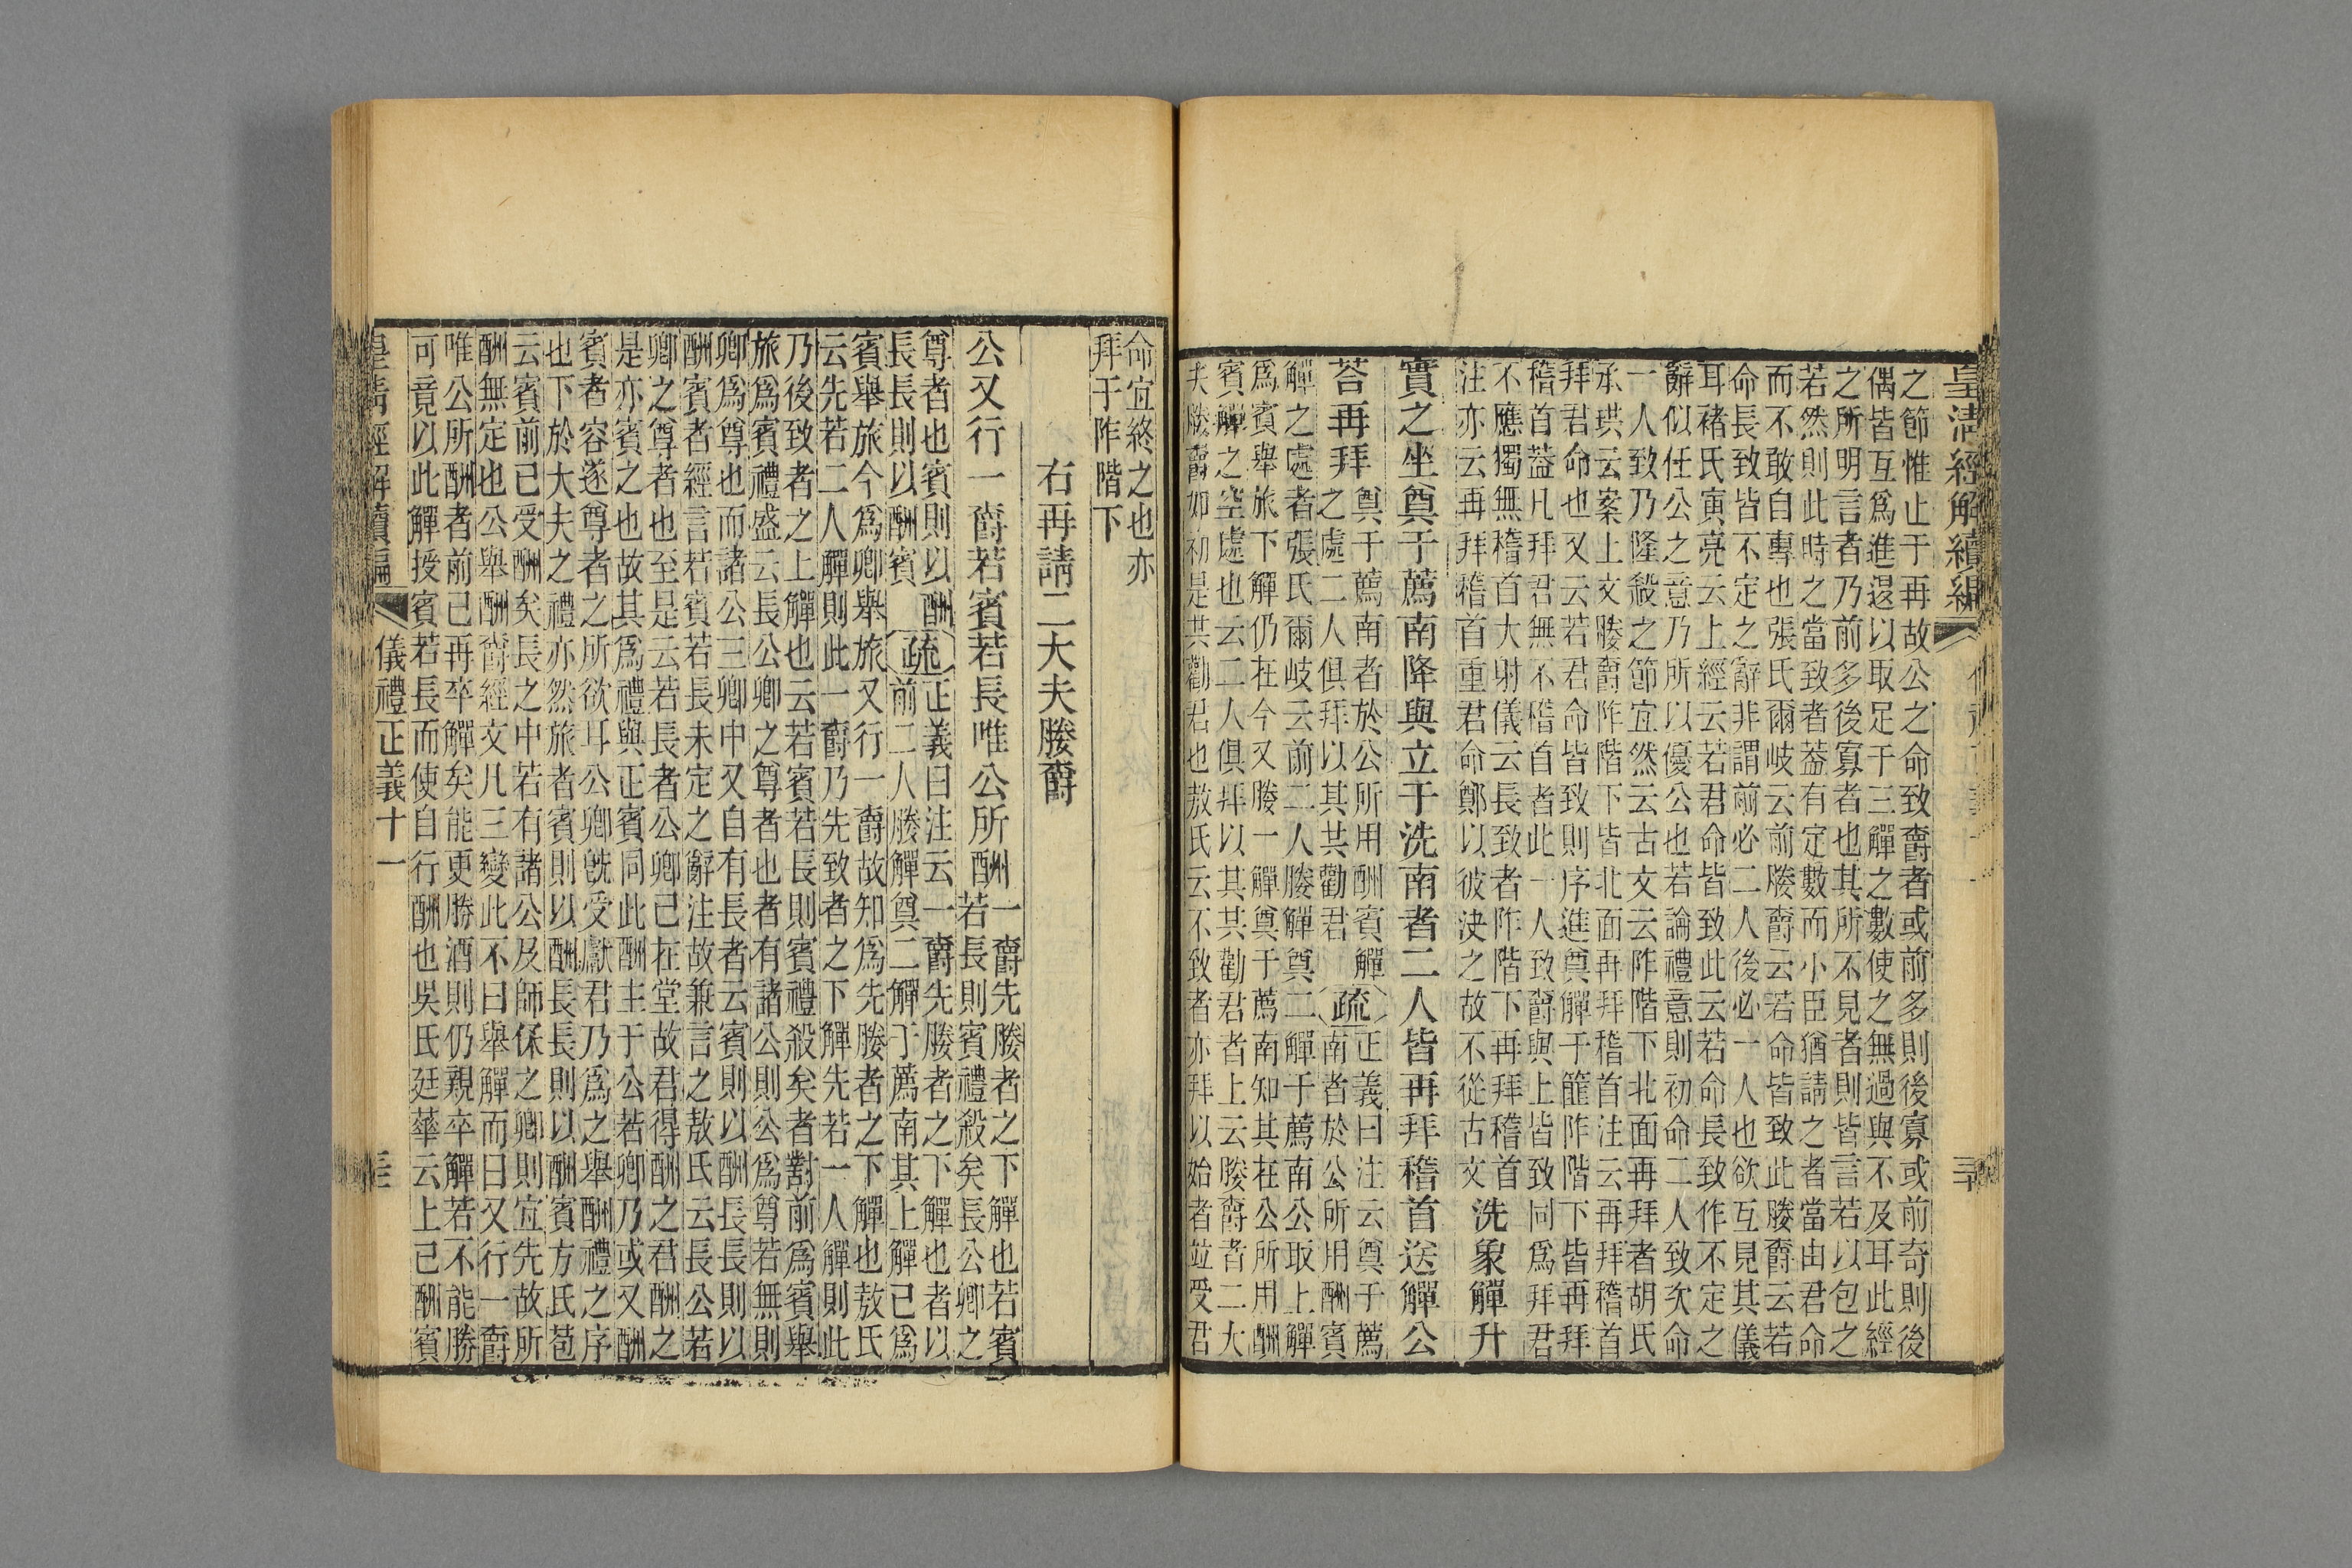 皇淸經解續編
三十
之節惟止于再故公之命致爵者或前多則後寡或前奇則後
偶皆互爲進退以取足于三觶之數使之無過與不及耳此經
之所明言者乃前多後寡者也其所不見者則皆言若以包之
若然則此時之當致者葢有定數而小臣猶請之者當由君命
而不敢自專也張氏爾岐云前媵爵云若命皆致此媵爵云若
命長致皆不定之辭非謂前必二人後必一人也欲互見其儀
耳褚氏寅亮云上經云若君命皆致此云若命長致作不定之
辭似任公之意乃所以優公也若論禮意則初命二人致次命
一人致乃隆殺之節宜然云古文云阼階下北面再拜者胡氏
承珙云案上文媵爵阼階下皆北面再拜稽首注云再拜稽首
拜君命也又云若君命皆致則序進奠觶于篚阼階下皆再拜
稽首葢凡拜君無不稽首者此一人致爵與上皆致同爲拜君
不應獨無稽首大射儀云長致者阼階下再拜稽首
注亦云再拜稽首重君命鄭以彼決之故不從古文
洗象觶升
實之坐奠于薦南降與立于洗南者二人皆再拜稽首送觶公
荅再拜
奠于薦南者於公所用酬賓觶
之處二人俱拜以其共勸君
疏
正義曰注云奠于薦
南者於公所用酬賓
觶之處者張氏爾岐云前二人媵觶奠二觶于薦南公取上觶
爲賓舉旅下觶仍在今又媵一觶奠于薦南知其在公所用酬
賓觶之空處也云二人俱拜以其共勸君者上云媵爵者二大
夫媵爵如初是其勸君也敖氏云不致者亦拜以始者竝受君
命宜終之也亦
拜于阼階下
右再請二大夫媵爵
公又行一爵若賓若長唯公所酬
一爵先媵者之下觶也若賓
若長則賓禮殺矣長公卿之
尊者也賓則以酬
長長則以酬賓
疏
正義曰注云一爵先媵者之下觶也者以
前二人媵觶奠二觶于薦南其上觶已爲
賓舉旅今爲卿舉旅又行一爵故知爲先媵者之下觶也敖氏
云先若二人觶則此一爵乃先致者之下觶先若一人觶則此
乃後致者之上觶也云若賓若長則賓禮殺矣者對前爲賓舉
旅爲賓禮盛云長公卿之尊者也者有諸公則公爲尊若無則
卿爲尊也而諸公三卿中又自有長者云賓則以酬長長則以
酬賓者經言若賓若長未定之辭注故兼言之敖氏云長公若
卿之尊者也至是云若長者公卿已在堂故君得酬之君酬之
是亦賓之也故其爲禮與正賓同此酬主于公若卿乃或又酬
賓者容遂尊者之所欲耳公卿旣受獻君乃爲之舉酬禮之序
也下於大夫之禮亦然旅者賓則以酬長長則以酬賓方氏苞
云賓前已受酬矣長之中若有諸公及師保之卿則宜先故所
酬無定也公舉酬爵經文凡三變此不曰舉觶而曰又行一爵
唯公所酬者前已再卒觶矣能更勝酒則仍親卒觶若不能勝
可竟以此觶授賓若長而使自行酬也吳氏廷華云上已酬賓
皇淸經解續編
儀禮正義十一